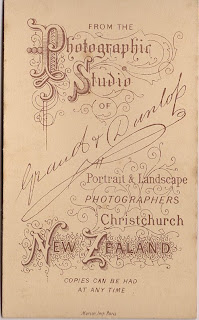 FROM THE
Photographic
Studio
OF
Grand & Dunlop
Portrait & Landscape
PHOTOGRAPHERS
Christchurch
NEW ZEALAND
COPIES CAN BE HAD
AT ANY TIME